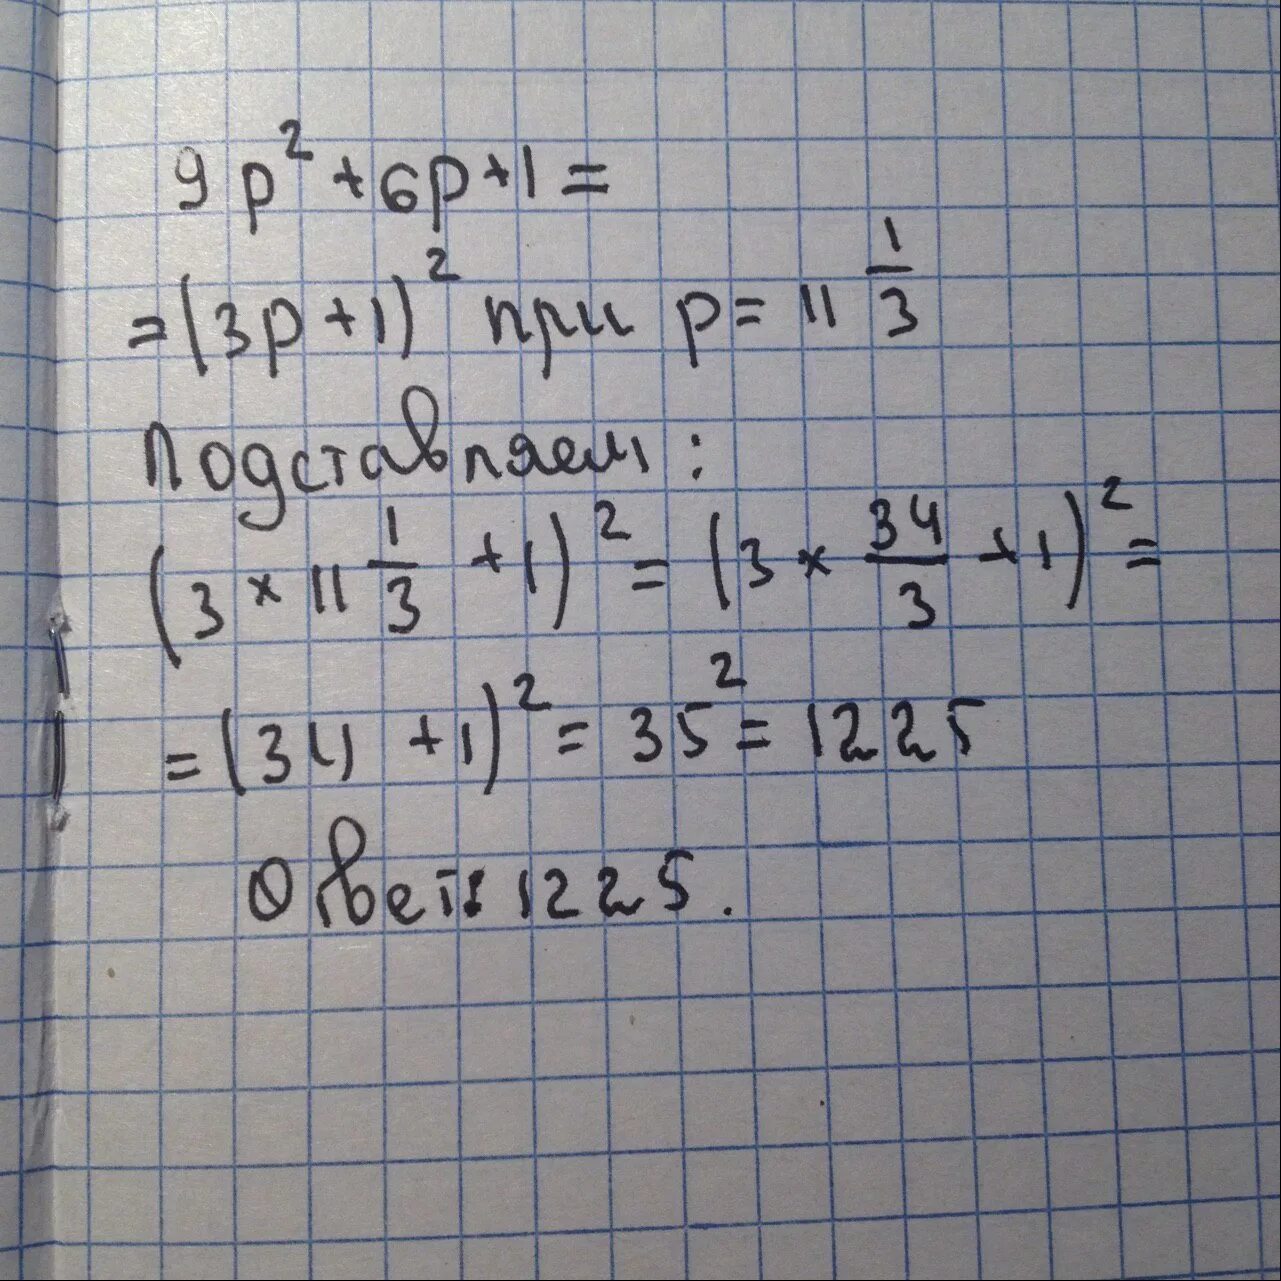 9p² + 6p + 1 =
= (3p + 1)² при p = 11 1/3
Подставляем:
(3 × 11 1/3 + 1)² = (3 × 34/3 + 1)² =
= (34 + 1)² = 35² = 1225
Ответ: 1225.